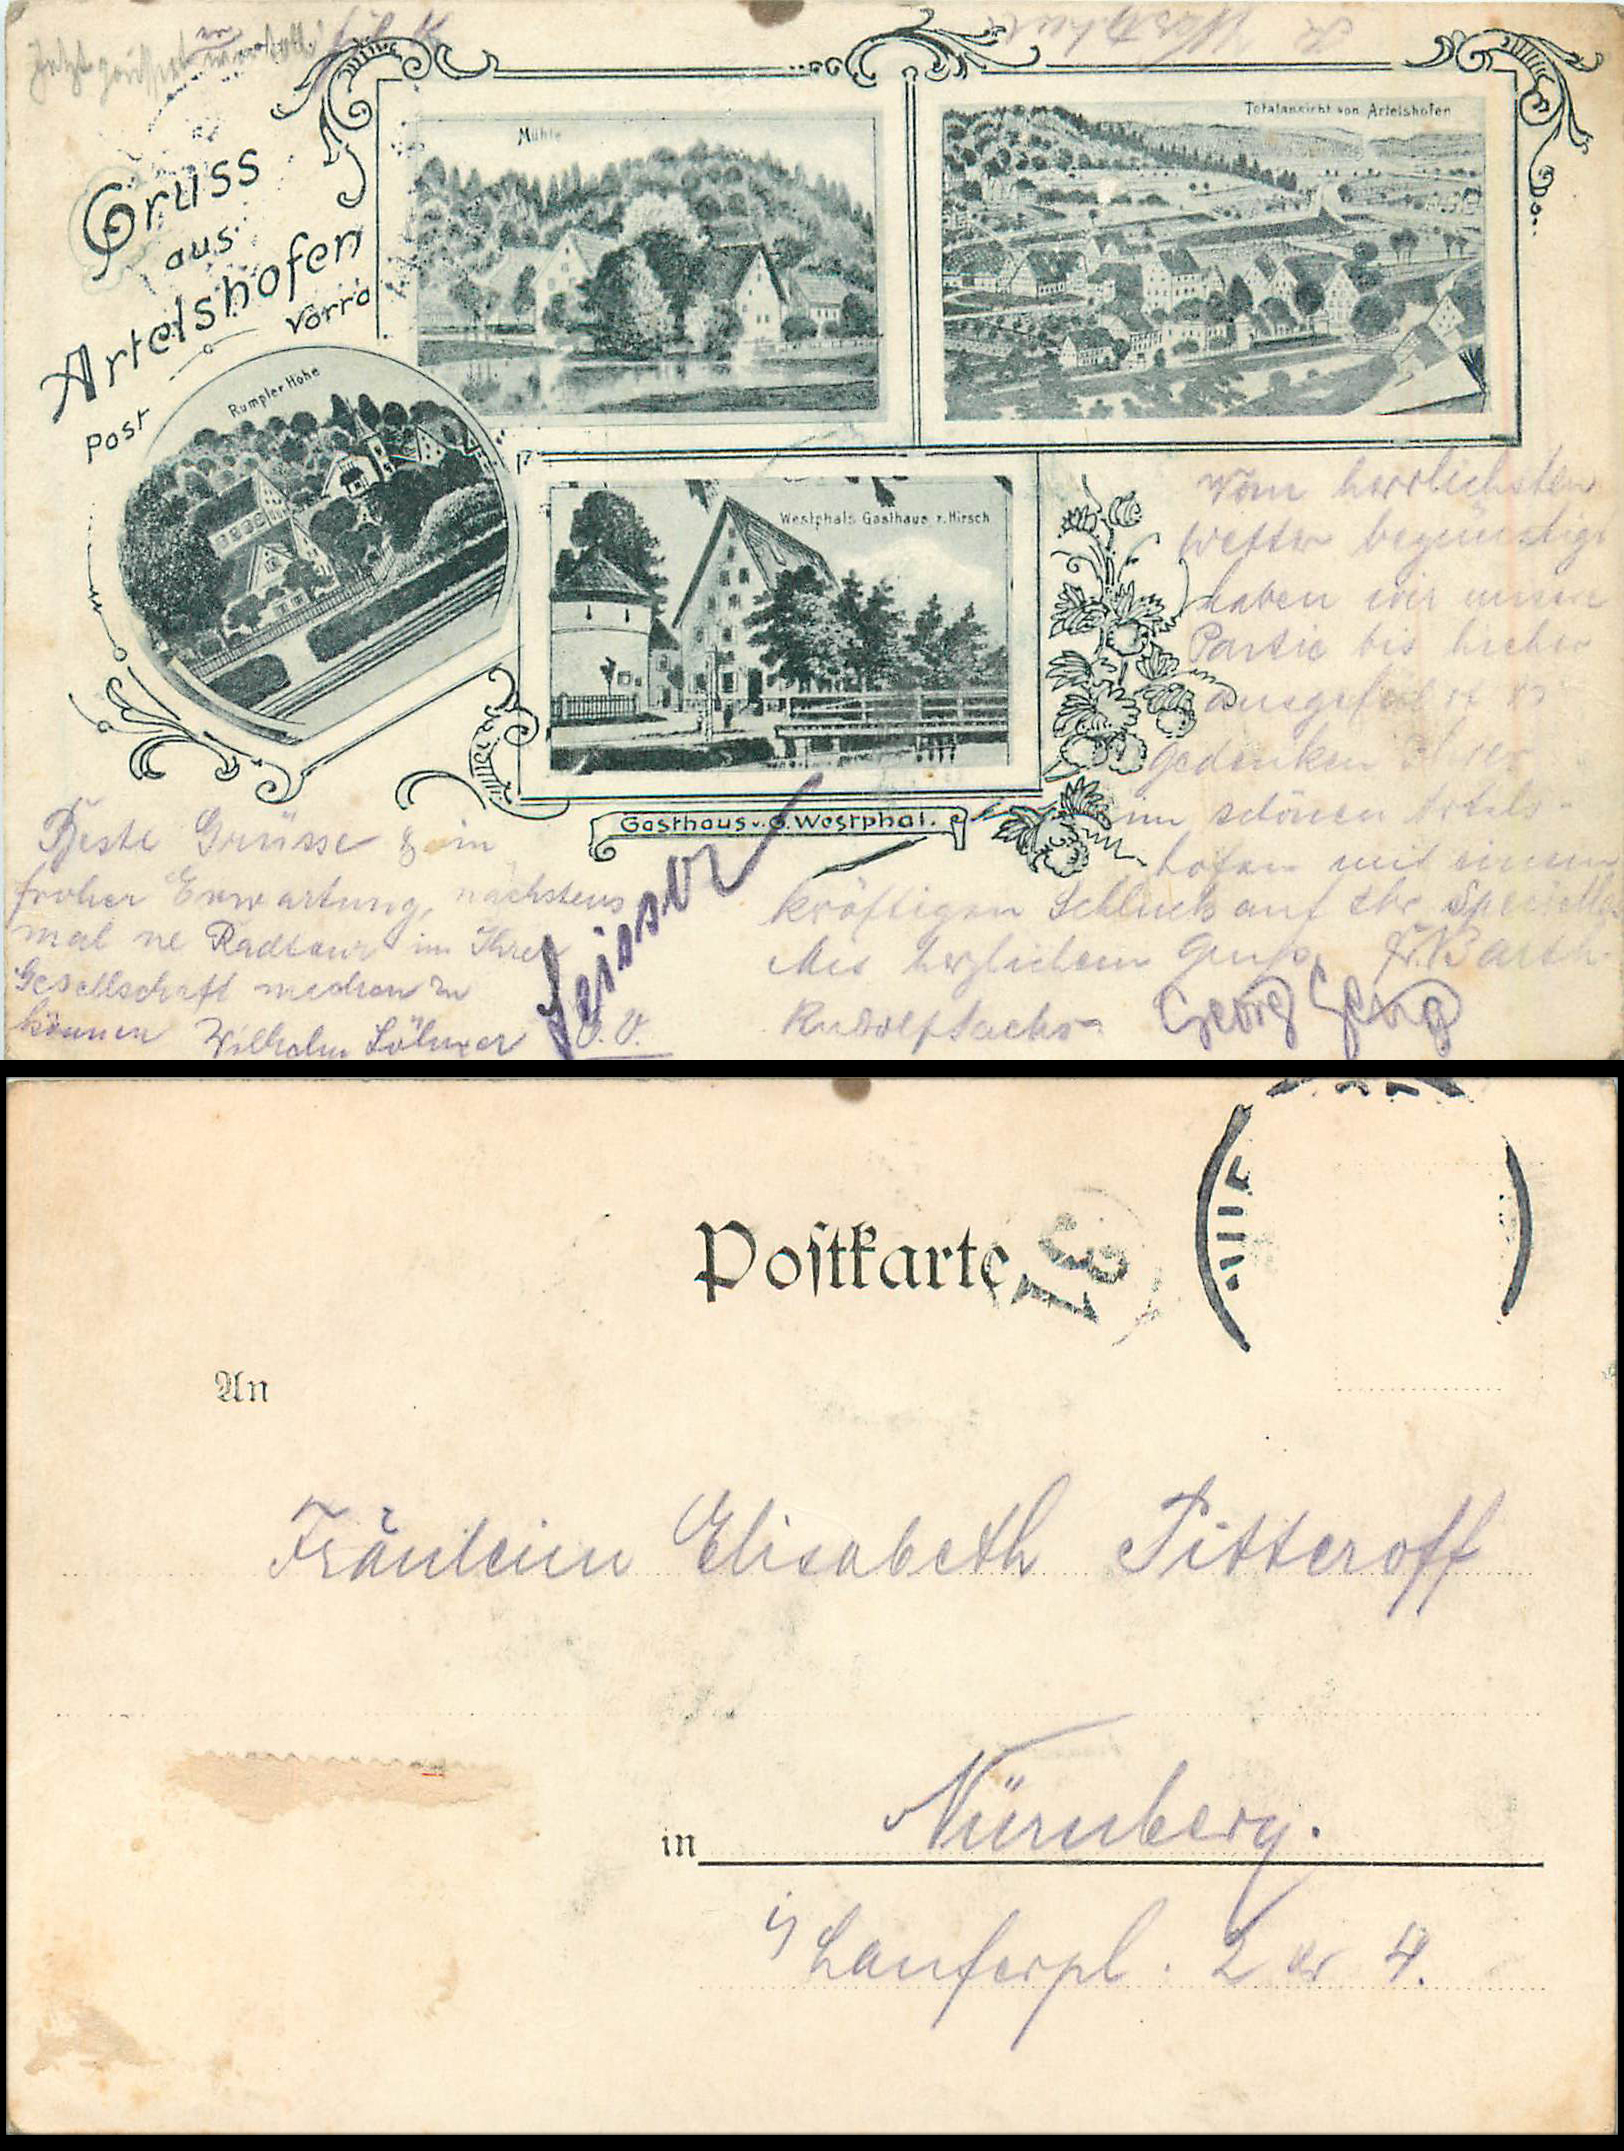 Gruss
aus
Artelshofen
Post Vorra
Mühle
Totalansicht von Artelshofen
Rumpler Höhe
Westphals Gasthaus z. Hirsch
Gasthaus v. G. Westphal.
Vom herrlichsten
Wetter begünstigt
haben wir unsere
Partie bis hieher
ausgeführt &
gedenken Ihrer
im schönen Artels-
hofen mit einem
kräftigen Schluck auf Ihr Spezielles
Mit herzlichem Gruss Fr. Barth
Rudolf Sachs
Georg Georg
Beste Grüsse & in
froher Erwartung, nächstens
mal ne Radtour in Ihrer
Gesellschaft machen zu
können Wilhelm Löhner
Postkarte
31
An
Fräulein Elisabeth Pitteroff
in Nürnberg.
Lauferpl. 2 er 4.